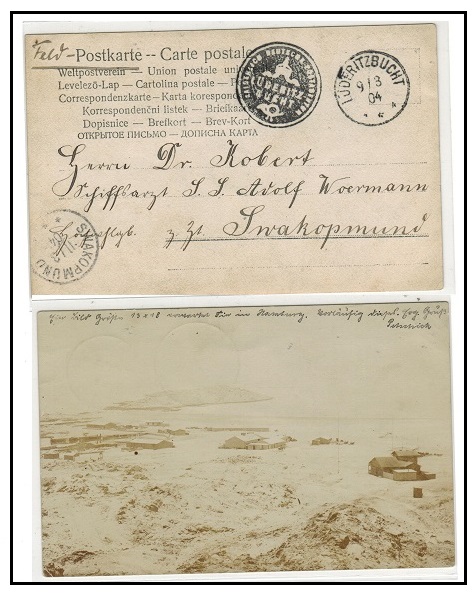 Feld-Postkarte -- Carte postale
Weltpostverein — Union postale uni
Levelező-Lap — Cartolina postale —
Correspondenzkarte — Karta korespond
Korrespondenční listek — Briefkaa
Dopisnice — Brefkort — Brev-Kort
ОТКРЫТОЕ ПИСЬМО — ДОПИСНА КАРТА
LÜDERITZBUCHT
9/3
04
Herrn Dr. Robert
Schiffsarzt S. S. Adolf Woermann
z. Zt. Swakopmund
SWAKOPMUND
Bild Größe 13 x 18 erwartet Sie in Hamburg. Vorläufig dieses.